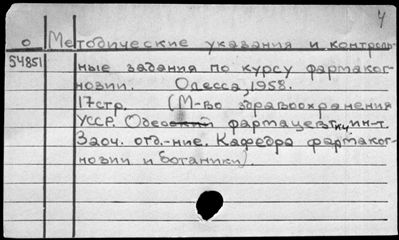 4
О Методические указания и контроль-
54851 ные задания по курсу фармаког-
нозии. Одесса, 1958.
17стр. (М-во здравоохранения
УССР. Одесский фармацевтич ин-т.
Заоч. отд.-ние. Кафедра фармаког-
нозии и ботаники).